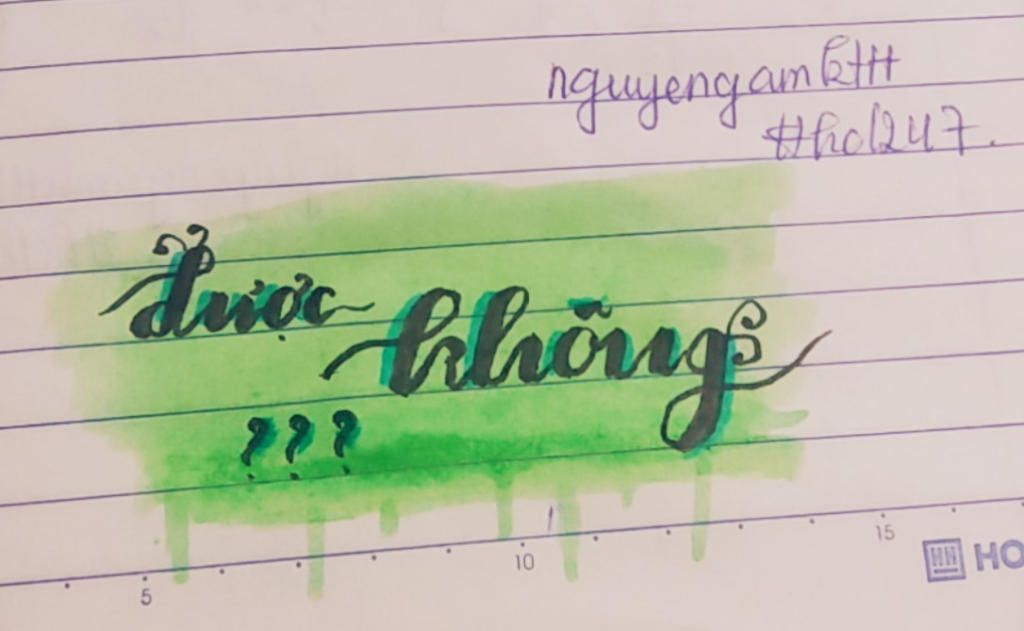 nguyengamkttt
#hd247.
được
không
???
5
10
15
HO